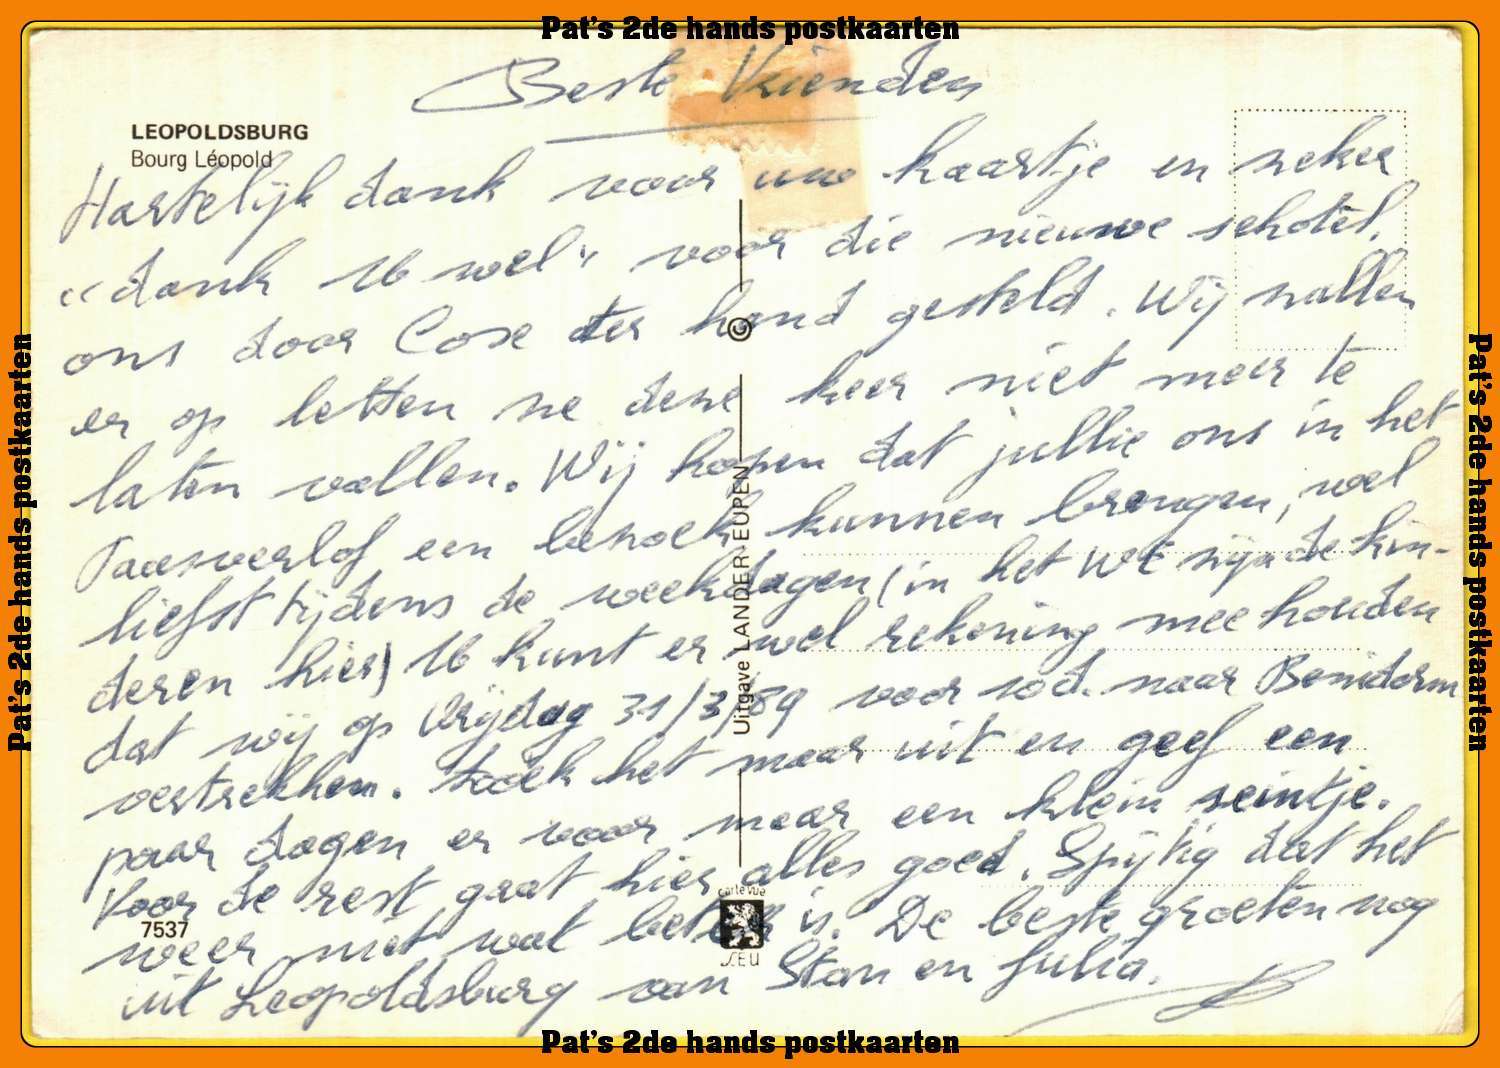 Pat's 2de hands postkaarten
Beste Vrienden
LEOPOLDSBURG
Bourg Léopold
Hartelijk dank voor uw kaartje en zeker
"dank U wel" voor die nieuwe schotel,
ons door Cose ter hand gesteld. Wij zullen
er op letten ze deze keer niet meer te
laten vallen. Wij hopen dat jullie ons in het
Paasverlof een bezoek kunnen brengen, wel
liefst tijdens de weekdagen (in het WE zijn de kin-
deren hier) U kunt er wel rekening mee houden
dat wij op Vrijdag 31/3/89 voor 10d. naar Benidorm
vertrekken. Zoek het maar uit en geef een
paar dagen er voor maar een klein seintje.
Voor de rest gaat hier alles goed. Spijtig dat het
weer niet wat beter is. De beste groeten nog
uit Leopoldsburg van Stan en Julia.
©
Uitgave LANDER-EUPEN
carte vue
SEU
7537
Pat's 2de hands postkaarten
Pat's 2de hands postkaarten
Pat's 2de hands postkaarten